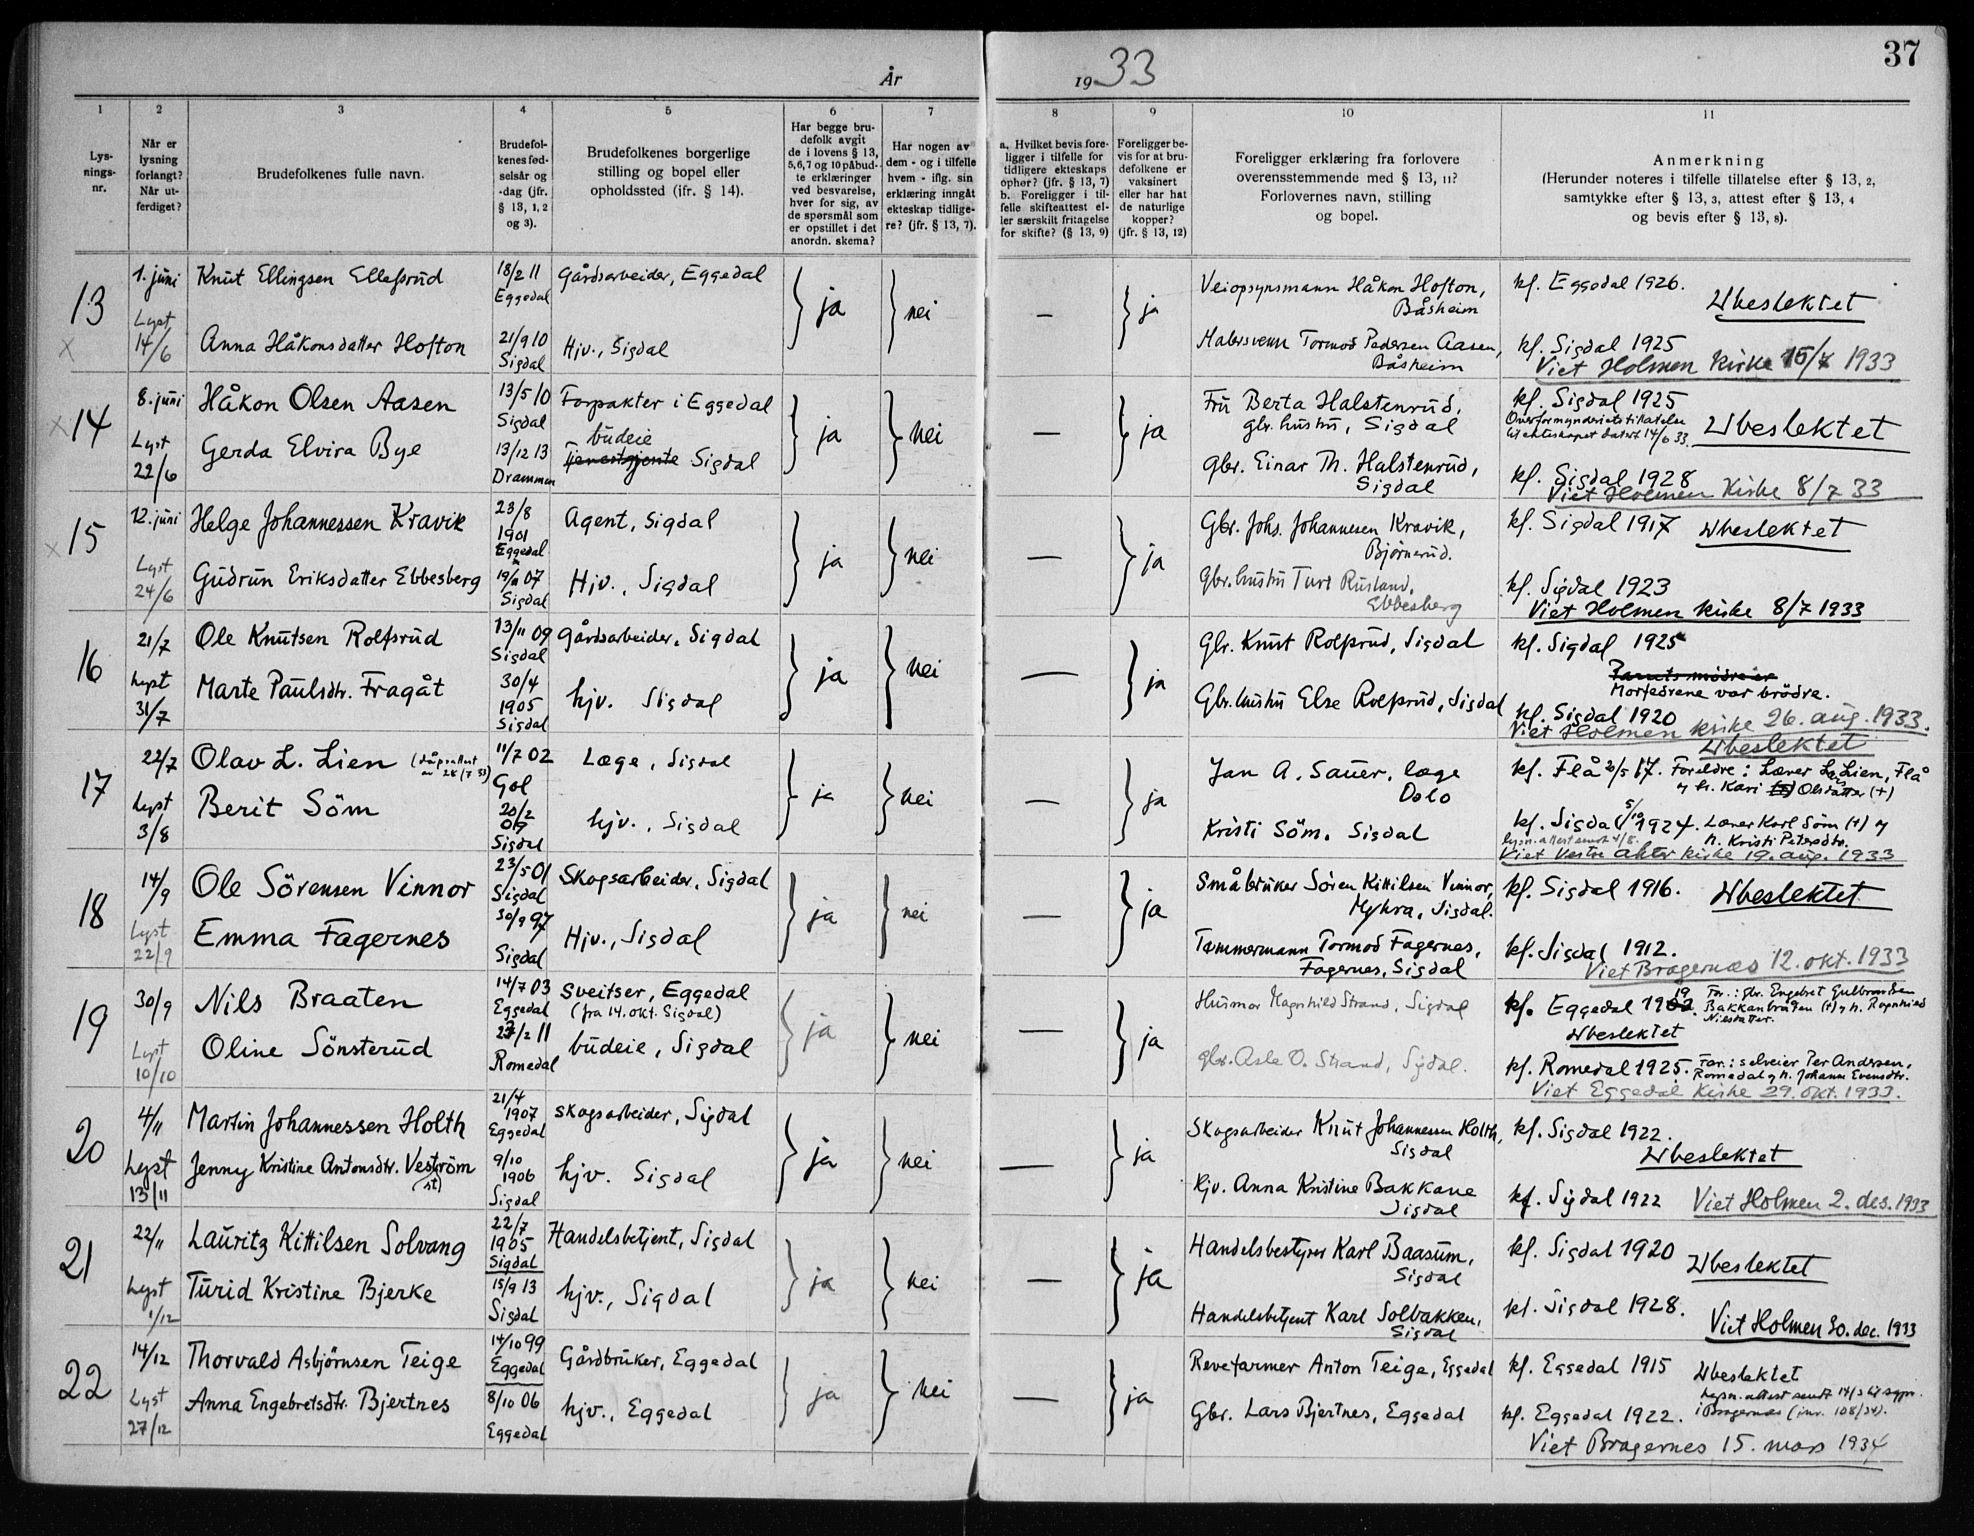 37
År 1933
1 2 3 4 5 6 7 8 9 10 11
Lysningsnr.
Når er lysning forlangt? Når utferdiget?
Brudefolkenes fulle navn.
Brudefolkenes fødselsår og -dag (jfr. § 13, 1, 2 og 3).
Brudefolkenes borgerlige stilling og bopel eller opholdssted (ifr. § 14).
Har begge brudefolk avgit de i lovens § 13, 5,6,7 og 10 påbudte erklæringer ved besvarelse, hver for sig, av de spørsmål som er opstillet i det anordn. skema?
Har nogen av dem - og i tilfelle hvem - iflg. sin erklæring inngåt ekteskap tidligere? (jfr. § 13, 7).
a. Hvilket bevis foreligger i tilfelle for tidligere ekteskaps ophør? (jfr. § 13, 7) b. Foreligger i tilfelle skifteattest eller særskilt fritagelse for skifte? (§ 13, 9)
Foreligger bevis for at brudefolkene er vaksinert eller har hat de naturlige kopper? (jfr. § 13, 12)
Foreligger erklæring fra forlovere overensstemmende med § 13, 11? Forlovernes navn, stilling og bopel.
Anmerkning (Herunder noteres i tilfelle tillatelse efter § 13, 2, samtykke efter § 13, 3, attest efter § 13, 4 og bevis efter § 13, 8).
13 1. juni Knut Ellingsen Ellefsrud 18/2 11 Eggedal Gårdsarbeider, Eggedal ja nei — ja Veiopsynsmann Håkon Hofton, Båsheim kf. Eggedal 1926. Ubeslektet
x Lyst 14/6 Anna Håkonsdatter Hofton 21/9 10 Sigdal Hjv., Sigdal Malersvenn Tormod Pedersen Aasen, Båsheim kf. Sigdal 1925
Viet Holmen kirke 15/7 1933
x 14 8. juni Håkon Olsen Aasen 13/5 10 Sigdal Forpakter i Eggedal ja nei — ja Fru Berta Halstenrud, gbr. hustru, Sigdal kf. Sigdal 1925
Overformynderiets tillatelse til ekteskapet datert 14/6 33. Ubeslektet
Lyst 22/6 Gerda Elvira Bye 13/12 13 Drammen budeie Tjenestgjente Sigdal Gbr. Einar Th. Halstenrud, Sigdal kf. Sigdal 1928
Viet Holmen Kirke 8/7 33
x 15 12. juni Helge Johannessen Kravik 23/8 1901 Eggedal Agent, Sigdal ja nei — ja Gbr. Johs. Johannesen Kravik, Bjørnerud. kf. Sigdal 1917 Ubeslektet
Lyst 24/6 Gudrun Eriksdatter Ebbesberg 07 Sigdal Hjv., Sigdal Gbr. hustru Turi Rusland, Ebbesberg kf. Sigdal 1923
Viet Holmen kirke 8/7 1933
16 21/7 Ole Knutsen Rolfsrud 13/11 09 Sigdal Gårdsarbeider, Sigdal ja nei — ja Gbr. Knut Rolfsrud, Sigdal kf. Sigdal 1925
Morfedrene var brödre.
Lyst 31/7 Marte Paulsdtr. Fragåt 30/4 1905 Sigdal hjv. Sigdal Gbr. hustru Else Rolfsrud, Sigdal kf. Sigdal 1920
Viet Holmen kirke 26. aug. 1933.
Ubeslektet
17 22/7 Olav L. Lien (dåpsattest av 28/7 33) 11/7 02 Gol Læge, Sigdal ja nei — ja Jan A. Sauer, læge Oslo kf. Flå 20/5 17. Foreldre: Lærer L. Lien, Flå og h. Kari Olsdatter (+)
Lyst 3/8 Berit Söm 20/2 09 Sigdal hjv., Sigdal Kristi Söm, Sigdal kf. Sigdal 5/10 1924. Lærer Karl Söm (+) og h. Kristi Petersdtr.
lysn. attest sendt 4/8.
Viet Vestre Aker kirke 19. aug. 1933
18 14/9 Ole Sörensen Vinnor 23/5 01 Sigdal Skogsarbeider, Sigdal ja nei — ja Småbruker Sören Kittilsen Vinnor, Myhra, Sigdal. kf. Sigdal 1916. Ubeslektet
Lyst 22/9 Emma Fagernes 30/9 97 Sigdal Hjv., Sigdal Tømmermann Tormod Fagernes, Fagernes, Sigdal kf. Sigdal 1912.
Viet Bragernæs 12. okt. 1933
19 30/9 Nils Braaten 14/7 03 Eggedal Sveitser, Eggedal (fra 14. okt. Sigdal) ja nei — ja Husmor Magnhild Strand, Sigdal kf. Eggedal 19 For.: gbr. Engebret Gulbrandsen Bakkanbråten (+) og h. Ragnhild Nilsdatter.
Ubeslektet
Lyst 10/10 Oline Sönsterud 27/2 11 Romedal budeie, Sigdal gbr. Asle O. Strand, Sigdal. kf. Romedal 1925. For.: selveier Per Andersen, Romedal og h. Johanne Evensdtr.
Viet Eggedal Kirke 29. okt. 1933.
20 4/11 Martin Johannessen Holth 21/4 1907 Eggedal Skogsarbeider, Sigdal ja nei — ja Skogsarbeider Knut Johannessen Holth, Sigdal kf. Sigdal 1922.
Ubeslektet
Lyst 13/11 Jenny Kristine Antonsdtr. Veström (st) 9/10 1906 Sigdal hjv. Sigdal hjv. Anna Kristine Bakkane Sigdal kf. Sigdal 1922 Viet Holmen 2. des. 1933
21 22/11 Lauritz Kittilsen Solvang 22/7 1905 Sigdal Handelsbetjent, Sigdal ja nei — ja Handelsbestyrer Karl Baasum, Sigdal kf. Sigdal 1920 Ubeslektet
Lyst 1/12 Turid Kristine Bjerke 15/9 13 Sigdal hjv., Sigdal Handelsbetjent Karl Solbakken, Sigdal kf. Sigdal 1928.
Viet Holmen 30. dec. 1933
22 14/12 Thorvald Asbjörnsen Teige 14/10 99 Eggedal Gårdbruker, Eggedal ja nei — ja Revefarmer Anton Teige, Eggedal kf. Eggedal 1915 Ubeslektet
Lyst 27/12 Anna Engebretsdtr. Bjertnes 8/10 06 Eggedal hjv., Eggedal Gbr. Lars Bjertnes, Eggedal kf. Eggedal 1922. Lysn. attest sendt 14/3 til sogn. i Bragernæs (jnr. 108/34).
Viet Bragernes 15. mars 1934